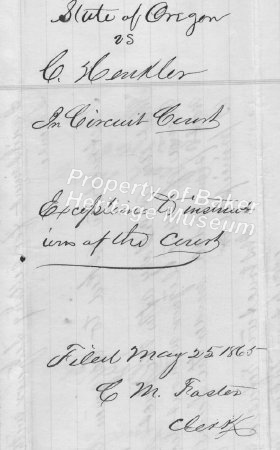 State of Oregon
vs
C. Henkler
In Circuit Court
Property of Baker
Heritage Museum
Exceptions to instruct
ions of the Court
Filed May 25 1865
C M. Foster
Clerk